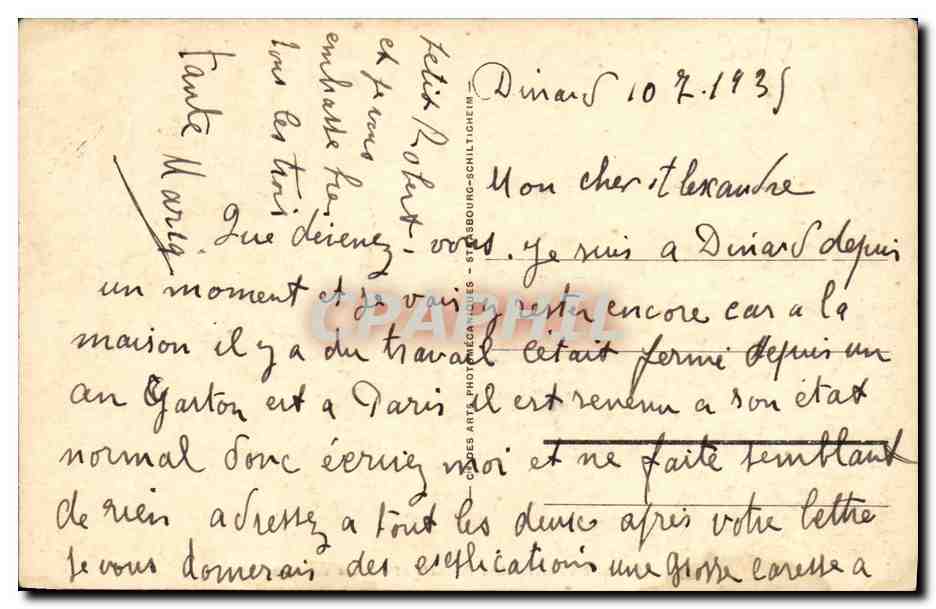 Dinard 10 7. 1935
Mon cher Alexandre
Que devenez-vous. Je suis a Dinard depuis
un moment et je vais y rester encore car a la
maison il y a du travail cetait fermé depuis un
an Gaston est a Paris il est revenu a son état
normal donc écrivez moi et ne faite semblant
de rien adressez a tout les deux apres votre lettre
Je vous donnerais des explications une grosse caresse a
Petit Robert
et je vous
embrasse
tous les trois
Tante Maria
CIE DES ARTS PHOTOMÉCANIQUES - STRASBOURG-SCHILTIGHEIM
CPAPHIL